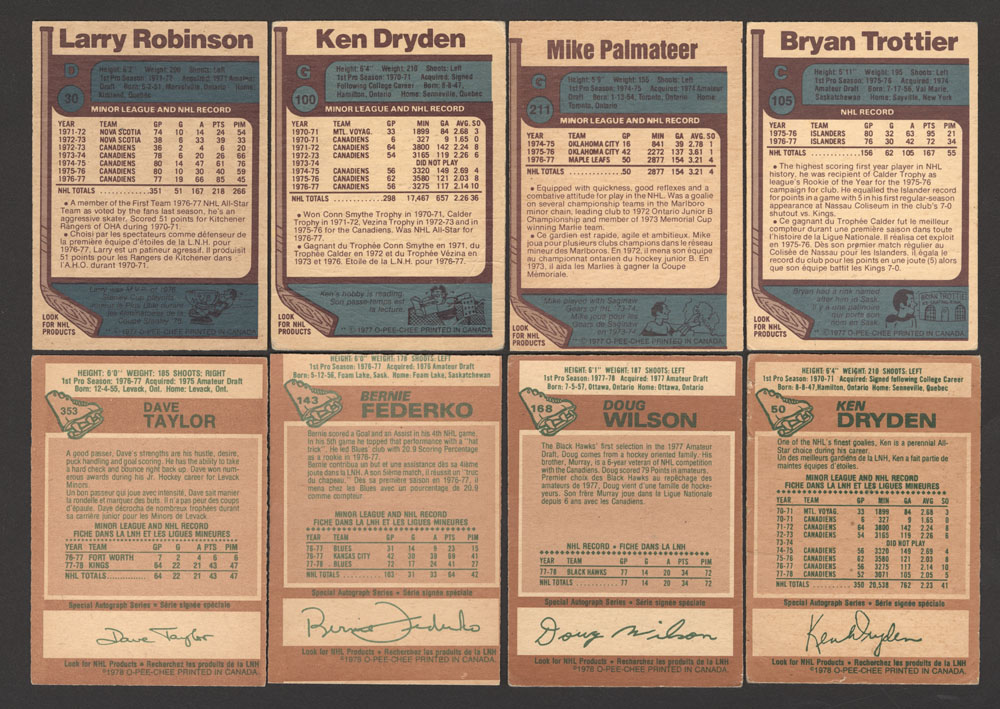 Larry Robinson
D
30
Height: 6'2" Weight: 200 Shoots: Left
1st Pro Season: 1971-72 Acquired: 1971 Amateur
Draft Born: 6-2-51, Marvelville, Ontario Home:
Kirkland, Quebec
MINOR LEAGUE AND NHL RECORD
YEAR TEAM GP G A PTS PIM
1971-72 NOVA SCOTIA 74 10 14 24 54
1972-73 NOVA SCOTIA 38 6 33 39 33
1972-73 CANADIENS 36 2 4 6 20
1973-74 CANADIENS 78 6 20 26 66
1974-75 CANADIENS 80 14 47 61 76
1975-76 CANADIENS 80 10 30 40 59
1976-77 CANADIENS 77 19 66 85 45
NHL TOTALS 351 51 167 218 266
• A member of the First Team 1976-77 NHL All-Star
Team as voted by the fans last season, he's an
aggressive skater. Scored 51 points for Kitchener
Rangers of OHA during 1970-71.
• Choisi par les spectateurs comme défenseur de
la première équipe d'étoiles de la L.N.H. pour
1976-77, Larry est un patineur agressif. Il produisit
51 points pour les Rangers de Kitchener dans
l'A.H.O. durant 1970-71.
LOOK
FOR NHL
PRODUCTS
© 1977 O-PEE-CHEE PRINTED IN CANADA
Ken Dryden
G
100
Height: 6'4" Weight: 210 Shoots: Left
1st Pro Season: 1970-71 Acquired: Signed
Following College Career Born: 8-8-47,
Hamilton, Ontario Home: Senneville, Quebec
MINOR LEAGUE AND NHL RECORD
YEAR TEAM GP MIN GA AVG. SO
1970-71 MTL. VOYAG. 33 1899 84 2.68 3
1970-71 CANADIENS 6 327 9 1.65 0
1971-72 CANADIENS 64 3800 142 2.24 8
1972-73 CANADIENS 54 3165 119 2.26 6
1973-74 DID NOT PLAY
1974-75 CANADIENS 56 3320 149 2.69 4
1975-76 CANADIENS 62 3580 121 2.03 8
1976-77 CANADIENS 56 3275 117 2.14 10
NHL TOTALS 298 17,467 657 2.26 36
• Won Conn Smythe Trophy in 1970-71, Calder
Trophy in 1971-72, Vezina Trophy in 1972-73 and in
1975-76 for the Canadiens. Was NHL All-Star for
1976-77.
• Gagnant du Trophée Conn Smythe en 1971, du
Trophée Calder en 1972 et du Trophée Vézina en
1973 et 1976. Etoile de la L.N.H. pour 1976-77.
Ken's hobby is reading.
Son passe-temps est
la lecture.
LOOK
FOR NHL
PRODUCTS
© 1977 O-PEE-CHEE PRINTED IN CANADA
Mike Palmateer
G
211
Height: 5'9" Weight: 155 Shoots: Left
1st Pro Season: 1974-75 Acquired: 1974 Amateur
Draft Born: 1-13-54, Toronto, Ontario Home:
Toronto, Ontario
MINOR LEAGUE AND NHL RECORD
YEAR TEAM GP MIN GA AVG. SO
1974-75 OKLAHOMA CITY 16 841 39 2.78 1
1975-76 OKLAHOMA CITY 42 2272 137 3.61 1
1976-77 MAPLE LEAFS 50 2877 154 3.21 4
NHL TOTALS 50 2877 154 3.21 4
• Equipped with quickness, good reflexes and a
combative attitude for play in the NHL. Was a goalie
on several championship teams in the Marlboro
minor chain, leading club to 1972 Ontario Junior B
Championship and member of 1973 Memorial Cup
winning Marlie team.
• Ce gardien est rapide, agile et ambitieux. Mike
joua pour plusieurs clubs champions dans le réseau
mineur des Marlboros. En 1972, il mena son équipe
au championnat ontarien du hockey junior B. En
1973, il aida les Marlies à gagner la Coupe
Mémoriale.
Mike played with Saginaw
Gears of IHL, '73-74.
Mike joua pour les
Gears de Saginaw
en 1973-74.
LOOK
FOR NHL
PRODUCTS
© 1977 O-PEE-CHEE PRINTED IN CANADA
Bryan Trottier
C
105
Height: 5'11" Weight: 195 Shoots: Left
1st Pro Season: 1975-76 Acquired: 1974
Amateur Draft Born: 7-17-56, Val Marie,
Saskatchewan Home: Sayville, New York
NHL RECORD
YEAR TEAM GP G A PTS PIM
1975-76 ISLANDERS 80 32 63 95 21
1976-77 ISLANDERS 76 30 42 72 34
NHL TOTALS 156 62 105 167 55
• The highest scoring first year player in NHL
history, he was recipient of Calder Trophy as
league's Rookie of the Year for the 1975-76
campaign for club. He equalled the Islander record
for points in a game with 5 in his first regular-season
appearance at Nassau Coliseum in the club's 7-0
shutout vs. Kings.
• Ce gagnant du Trophée Calder fut le meilleur
compteur durant une première saison dans toute
l'histoire de la Ligue Nationale. Il réalisa cet exploit
en 1975-76. Dès son premier match régulier au
Colisée de Nassau pour les Islanders, il égala le
record du club pour les points en une joute (5) alors
que son équipe battit les Kings 7-0.
Bryan had a rink named
after him in Sask.
LOOK
FOR NHL
PRODUCTS
BRYAN TROTTIER
© 1977 O-PEE-CHEE PRINTED IN CANADA
HEIGHT: 6'0" WEIGHT: 185 SHOOTS: RIGHT
1st Pro Season: 1976-77 Acquired: 1975 Amateur Draft
Born: 12-4-55, Levack, Ont. Home: Levack, Ont.
353
DAVE
TAYLOR
A good passer, Dave's strengths are his hustle, desire,
puck handling and goal scoring. He has the ability to take
a hard check and bounce right back up. Dave won num-
erous awards during his Jr. Hockey career for Levack
Minors.
Un bon passeur qui joue avec intensité, Dave sait manier
la rondelle et marquer des buts. Il n'a pas peur des coups
d'épaule. Dave décrocha de nombreux trophées durant
sa carrière junior pour les Minors de Levack.
MINOR LEAGUE AND NHL RECORD
FICHE DANS LA LNH ET LES LIGUES MINEURES
YEAR TEAM GP G A PTS PIM
76-77 FORT WORTH 7 2 4 6 6
77-78 KINGS 64 22 21 43 47
NHL TOTALS 64 22 21 43 47
Special Autograph Series • Série signée spéciale
Dave Taylor
Look for NHL Products • Recherchez les produits de la LNH
©1978 O-PEE-CHEE PRINTED IN CANADA.
HEIGHT: 6'0" WEIGHT: 178 SHOOTS: LEFT
1st Pro Season: 1976-77 Acquired: 1976 Amateur Draft
Born: 5-12-56, Foam Lake, Sask. Home: Foam Lake, Saskatchewan
143
BERNIE
FEDERKO
Bernie scored a Goal and an Assist in his 4th NHL game.
In his 5th game he topped that performance with a "hat
trick". He led Blues' club with 20.9 Scoring Percentage
as a rookie in 1976-77.
Bernie contribua un but et une assistance dès sa 4ième
joute dans la LNH. A son 5ième match, il réussit un "truc
du chapeau." Dès sa première saison en 1976-77, il
mena chez les Blues avec un pourcentage de 20.9
comme compteur.
MINOR LEAGUE AND NHL RECORD
FICHE DANS LA LNH ET LES LIGUES MINEURES
YEAR TEAM GP G A PTS PIM
76-77 BLUES 31 14 9 23 15
76-77 KANSAS CITY 42 30 39 69 41
77-78 BLUES 72 17 24 41 27
NHL TOTALS 103 31 33 64 42
Special Autograph Series • Série signée spéciale
Bernie Federko
Look for NHL Products • Recherchez les produits de la LNH
©1978 O-PEE-CHEE PRINTED IN CANADA.
HEIGHT: 6'1" WEIGHT: 187 SHOOTS: LEFT
1st Pro Season: 1977-78 Acquired: 1977 Amateur Draft
Born: 7-5-57, Ottawa, Ontario Home: Ottawa, Ontario
168
DOUG
WILSON
The Black Hawks' first selection in the 1977 Amateur
Draft, Doug comes from a hockey oriented family. His
brother, Murray, is a 6-year veteran of NHL competition
with the Canadiens. Doug scored 79 Points in amateurs.
Premier choix des Black Hawks au repêchage des
amateurs de 1977, Doug vient d'une famille de hocke-
yeurs. Son frère Murray joue dans la Ligue Nationale
depuis 6 ans avec les Canadiens.
NHL RECORD • FICHE DANS LA LNH
YEAR TEAM GP G A PTS PIM
77-78 BLACK HAWKS 77 14 20 34 72
NHL TOTALS 77 14 20 34 72
Special Autograph Series • Série signée spéciale
Doug Wilson
Look for NHL Products • Recherchez les produits de la LNH
©1978 O-PEE-CHEE PRINTED IN CANADA.
HEIGHT: 6'4" WEIGHT: 210 SHOOTS: LEFT
1st Pro Season: 1970-71 Acquired: Signed following College Career
Born: 8-8-47, Hamilton, Ontario Home: Senneville, Quebec
50
KEN
DRYDEN
One of the NHL's finest goalies, Ken is a perennial All-
Star choice during his career.
Un des meilleurs gardiens de la LNH, Ken a fait partie de
maintes équipes d'étoiles.
MINOR LEAGUE AND NHL RECORD
FICHE DANS LA LNH ET LES LIGUES MINEURES
YEAR TEAM GP MIN GA AVG SO
70-71 MTL. VOYAG. 33 1899 84 2.68 3
70-71 CANADIENS 6 327 9 1.65 0
71-72 CANADIENS 64 3800 142 2.24 8
72-73 CANADIENS 54 3165 119 2.26 6
73-74 DID NOT PLAY
74-75 CANADIENS 56 3320 149 2.69 4
75-76 CANADIENS 62 3580 121 2.03 8
76-77 CANADIENS 56 3275 117 2.14 10
77-78 CANADIENS 52 3071 105 2.05 5
NHL TOTALS 350 20,538 762 2.23 41
Special Autograph Series • Série signée spéciale
Ken Dryden
Look for NHL Products • Recherchez les produits de la LNH
©1978 O-PEE-CHEE PRINTED IN CANADA.